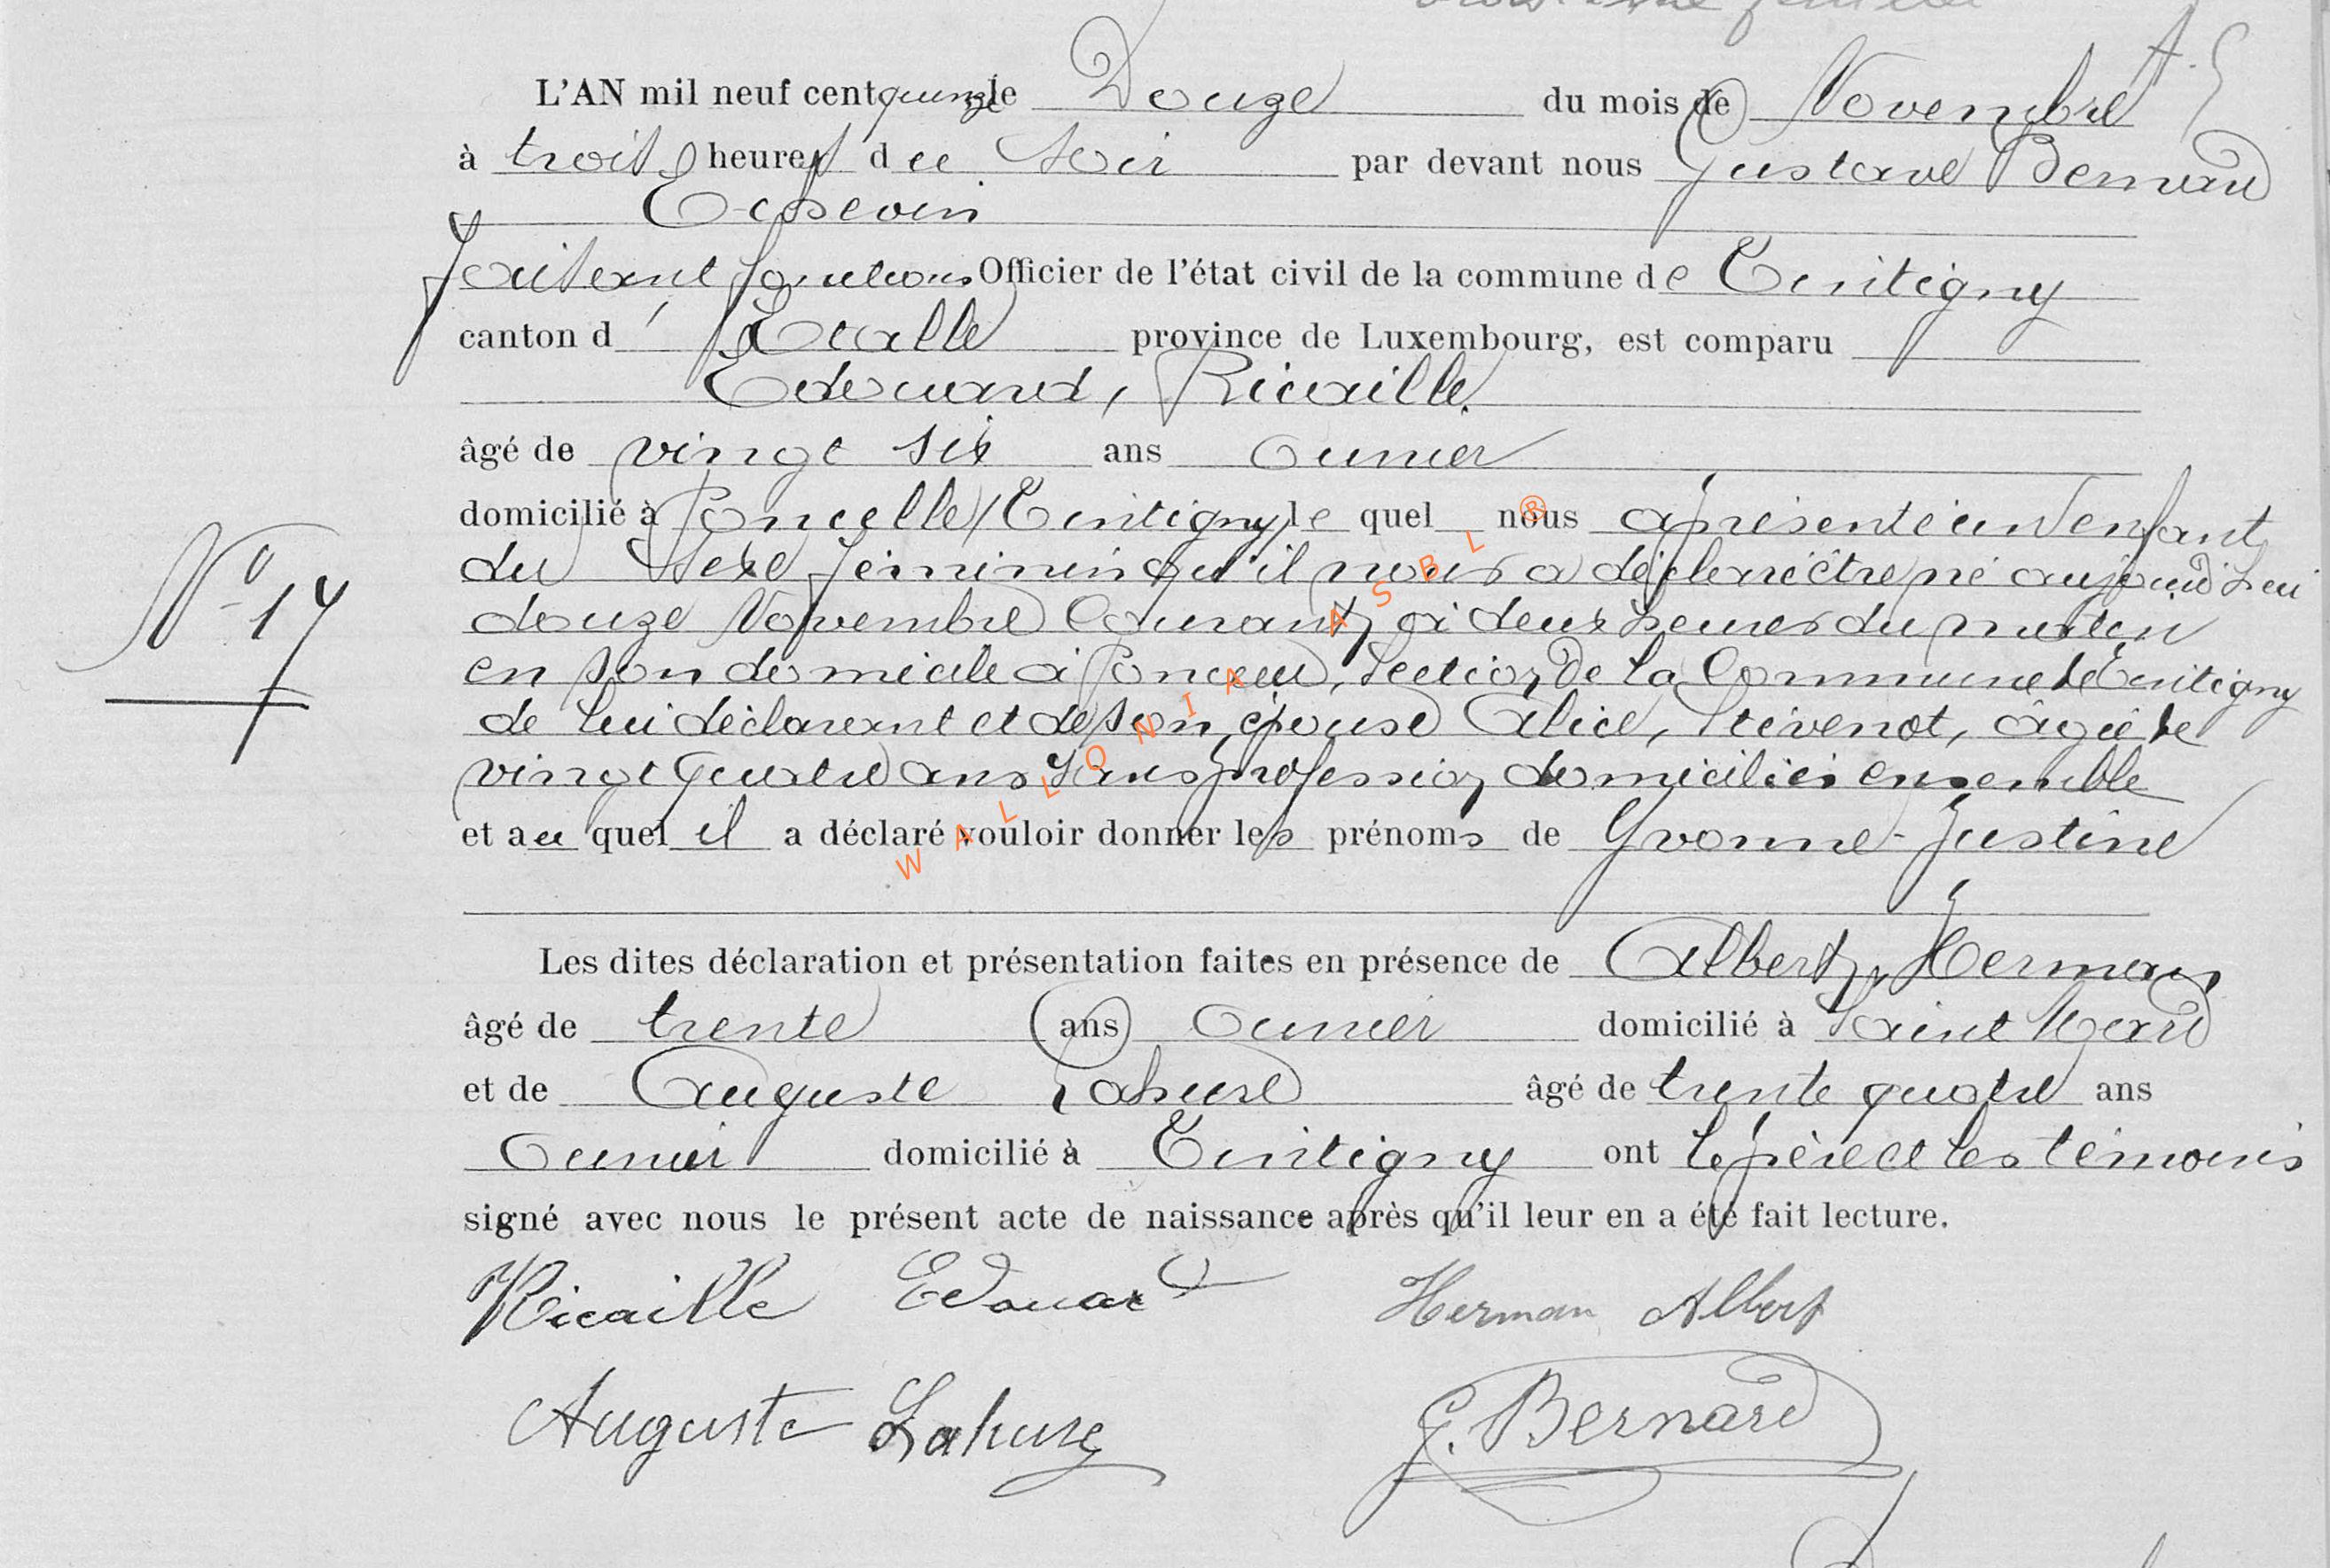 L'AN mil neuf cent quinze le Douze du mois de Novembre
à trois heures du soir par devant nous Gustave Bernard
Echevin
faisant fonctions Officier de l'état civil de la commune de Tintigny
canton d' Etalle province de Luxembourg, est comparu
Edouard, Ricaille
âgé de vingt six ans ouvrier
domicilié à Poncelle (Tintigny) le quel nous a présenté un enfant
du sexe féminin qu'il nous a déclaré être né aujourd'hui
douze Novembre courant, à deux heures du matin
en son domicile à Poncelle, section de la Commune de Tintigny
de lui déclarant et de son épouse Alice, Stévenot, âgée de
vingt quatre ans sans profession domiciliés ensemble
et au quel il a déclaré vouloir donner les prénoms de Yvonne-Justine
N° 17
Les dites déclaration et présentation faites en présence de Albert, Herman
âgé de trente ans ouvrier domicilié à Saint Mard
et de Auguste Lahure âgé de trente quatre ans
ouvrier domicilié à Tintigny ont le père et les témoins
signé avec nous le présent acte de naissance après qu'il leur en a été fait lecture.
Ricaille Edouard Herman Albert
Auguste Lahure G. Bernard
WALLONIA ASBL ®